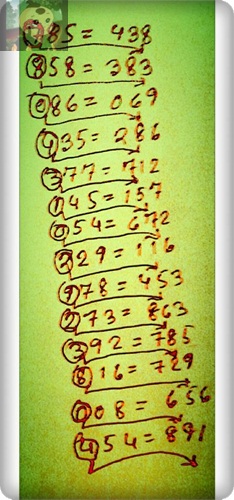 185 = 438
858 = 383
086 = 069
935 = 286
377 = 712
145 = 157
054 = 672
329 = 116
178 = 453
273 = 863
392 = 785
616 = 729
008 = 656
454 = 891